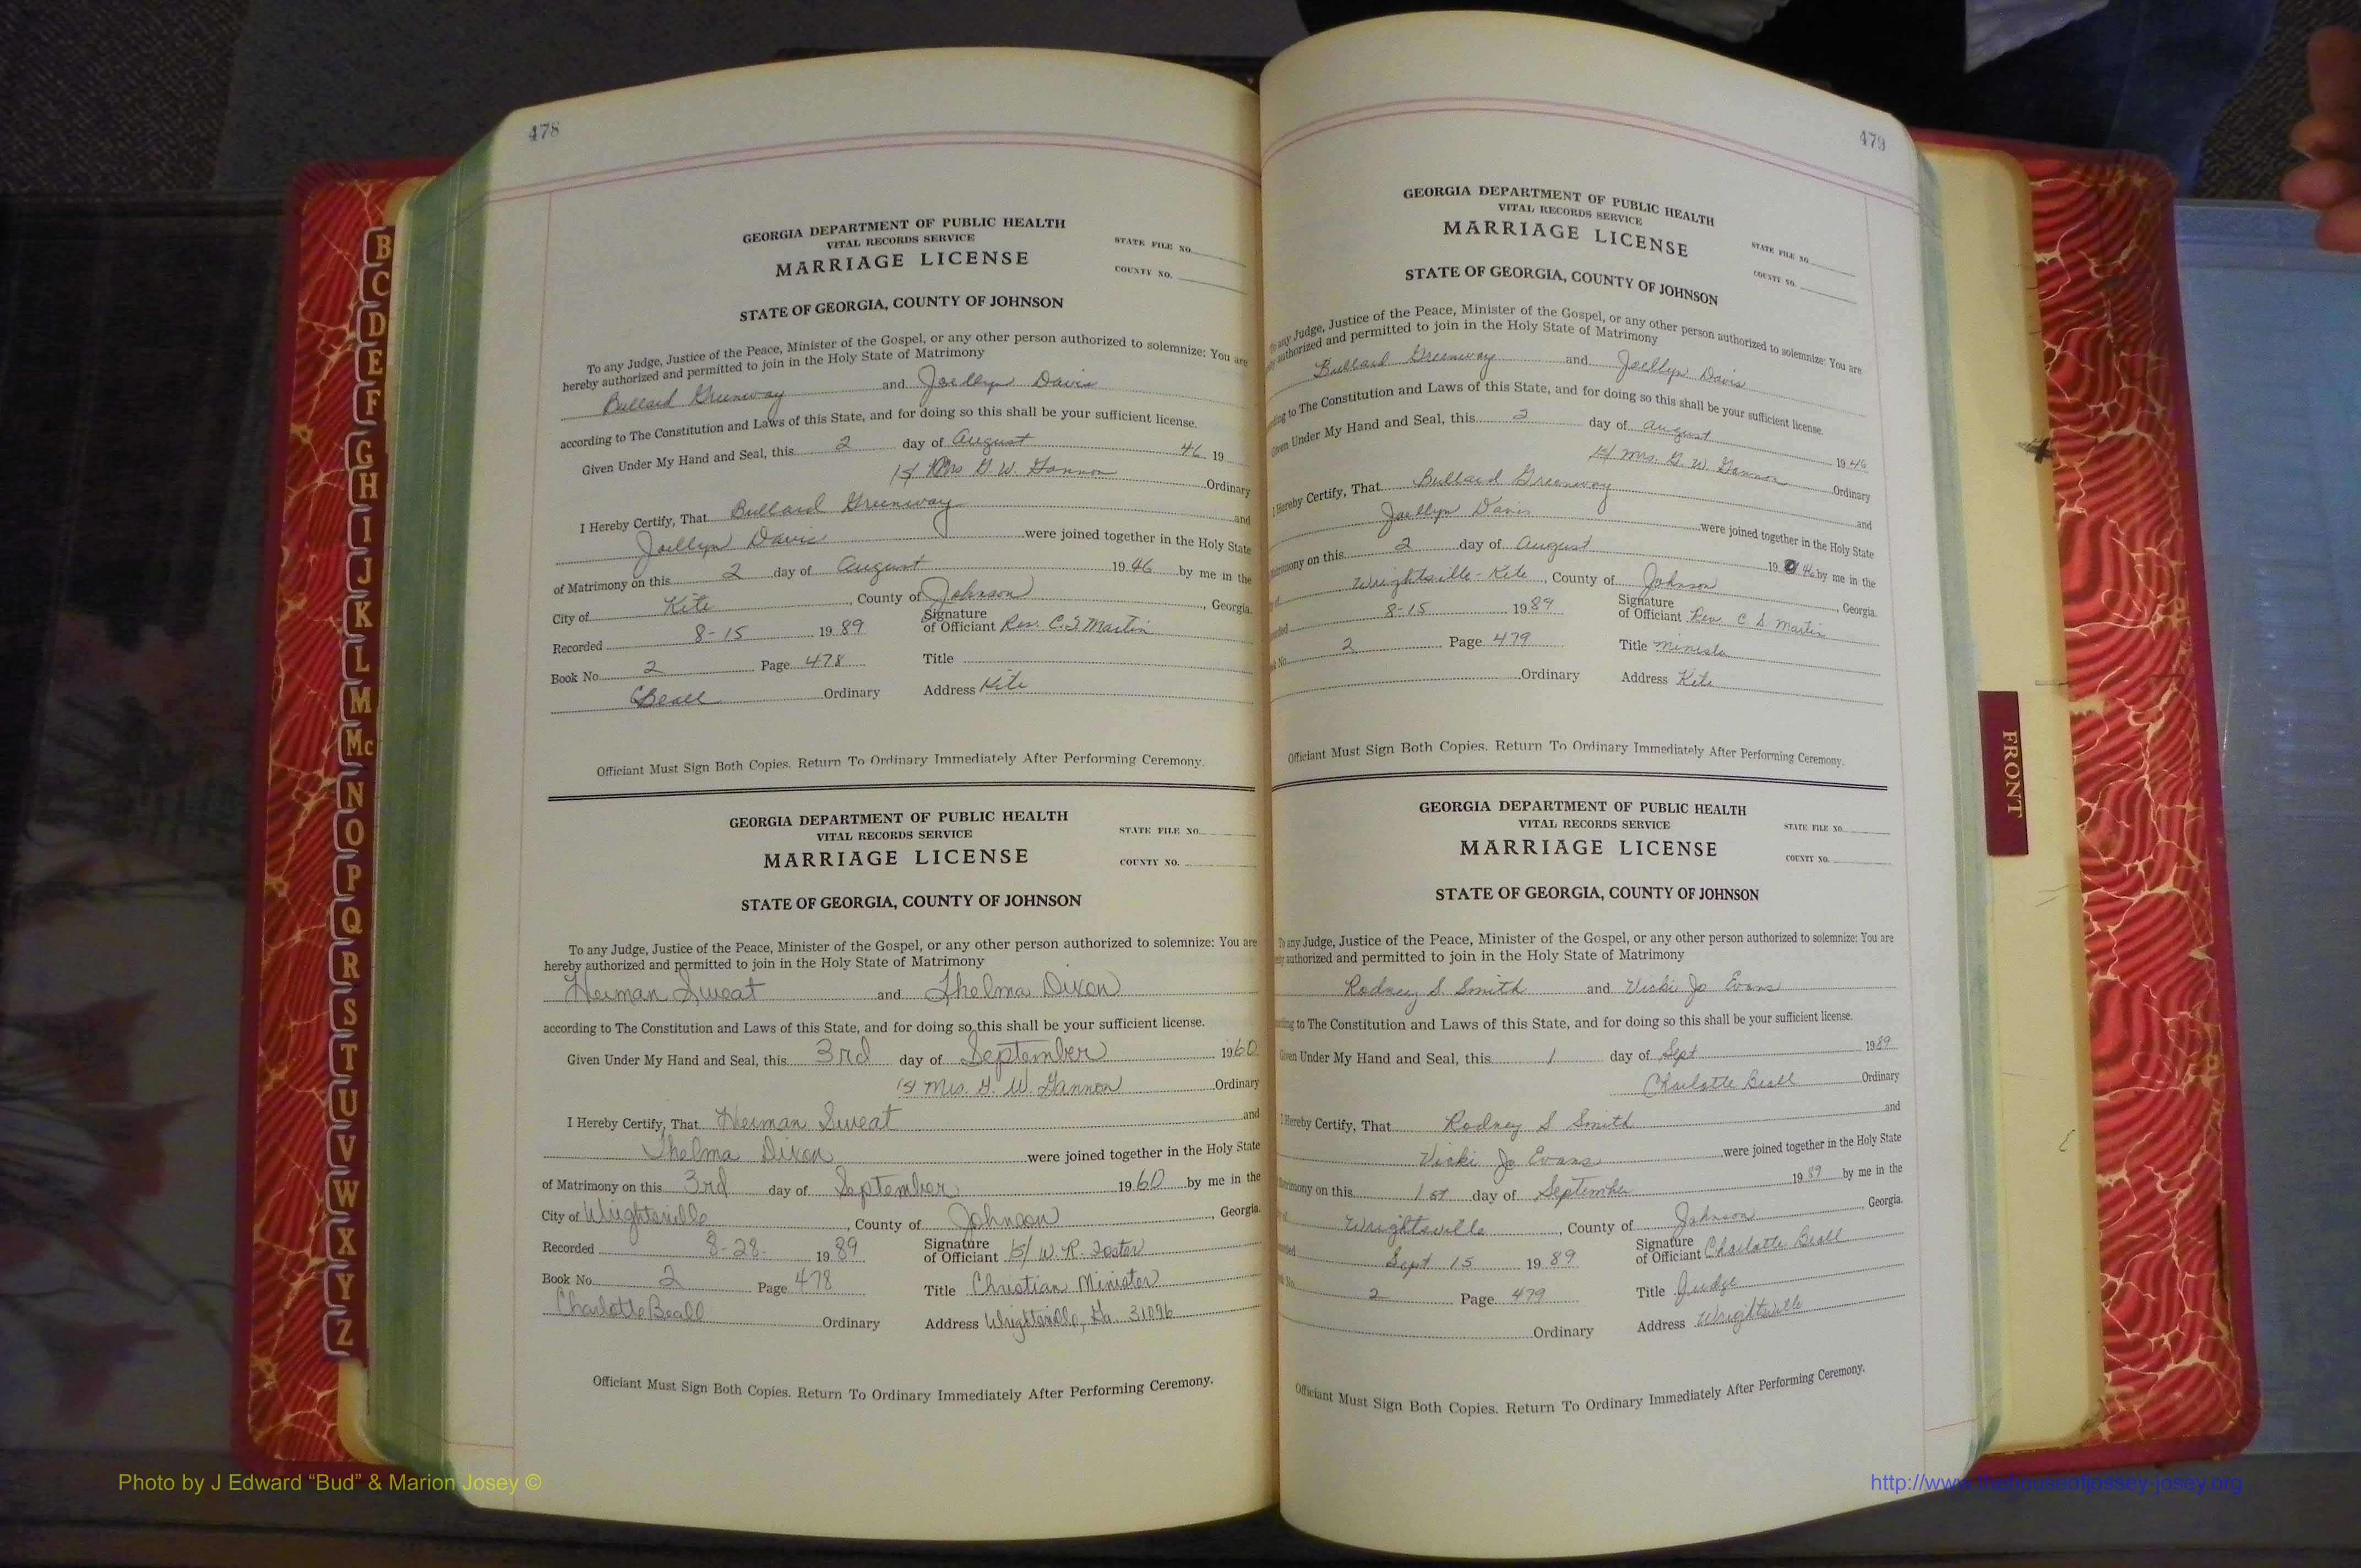 478
GEORGIA DEPARTMENT OF PUBLIC HEALTH
VITAL RECORDS SERVICE
MARRIAGE LICENSE
STATE FILE NO.
COUNTY NO.
STATE OF GEORGIA, COUNTY OF JOHNSON
To any Judge, Justice of the Peace, Minister of the Gospel, or any other person authorized to solemnize: You are
hereby authorized and permitted to join in the Holy State of Matrimony
Bullard Greenway and Joellyn Davis
according to The Constitution and Laws of this State, and for doing so this shall be your sufficient license.
Given Under My Hand and Seal, this 2 day of August 46 19
/s/ Mrs G. W. Gannon Ordinary
I Hereby Certify, That Bullard Greenway and
Joellyn Davis were joined together in the Holy State
of Matrimony on this 2 day of August 1946 by me in the
City of Kite, County of Johnson, Georgia.
Recorded 8-15 1989 Signature of Officiant Rev. C. S. Martin
Book No. 2 Page 478 Title
CBeall Ordinary Address Kite
Officiant Must Sign Both Copies. Return To Ordinary Immediately After Performing Ceremony.
GEORGIA DEPARTMENT OF PUBLIC HEALTH
VITAL RECORDS SERVICE
MARRIAGE LICENSE
STATE FILE NO.
COUNTY NO.
STATE OF GEORGIA, COUNTY OF JOHNSON
To any Judge, Justice of the Peace, Minister of the Gospel, or any other person authorized to solemnize: You are
hereby authorized and permitted to join in the Holy State of Matrimony
Herman Sweat and Thelma Dixon
according to The Constitution and Laws of this State, and for doing so this shall be your sufficient license.
Given Under My Hand and Seal, this 3rd day of September 1960
/s/ Mrs. G. W. Gannon Ordinary
I Hereby Certify, That Herman Sweat and
Thelma Dixon were joined together in the Holy State
of Matrimony on this 3rd day of September 1960 by me in the
City of Wrightsville, County of Johnson, Georgia
Recorded 8-28- 1989 Signature of Officiant /s/ W. R. Foster
Book No. 2 Page 478 Title Christian Minister
Charlotte Beall Ordinary Address Wrightsville, Ga. 31096
Officiant Must Sign Both Copies. Return To Ordinary Immediately After Performing Ceremony.
479
GEORGIA DEPARTMENT OF PUBLIC HEALTH
VITAL RECORDS SERVICE
MARRIAGE LICENSE
STATE FILE NO.
COUNTY NO.
STATE OF GEORGIA, COUNTY OF JOHNSON
To any Judge, Justice of the Peace, Minister of the Gospel, or any other person authorized to solemnize: You are
authorized and permitted to join in the Holy State of Matrimony
Bullard Greenway and Joellyn Davis
to The Constitution and Laws of this State, and for doing so this shall be your sufficient license.
Given Under My Hand and Seal, this 2 day of August 1946
/s/ Mrs. G. W. Gannon Ordinary
I Hereby Certify, That Bullard Greenway and
Joellyn Davis were joined together in the Holy State
on this 2 day of August 19 46 by me in the
Wrightsville-Kite, County of Johnson, Georgia.
8-15 1989 Signature of Officiant Rev. C S. Martin
2 Page 479 Title Ministe
Ordinary Address Kite
Officiant Must Sign Both Copies. Return To Ordinary Immediately After Performing Ceremony.
GEORGIA DEPARTMENT OF PUBLIC HEALTH
VITAL RECORDS SERVICE
MARRIAGE LICENSE
STATE FILE NO.
COUNTY NO.
STATE OF GEORGIA, COUNTY OF JOHNSON
To any Judge, Justice of the Peace, Minister of the Gospel, or any other person authorized to solemnize: You are
authorized and permitted to join in the Holy State of Matrimony
Rodney S. Smith and Vicki Jo Evans
to The Constitution and Laws of this State, and for doing so this shall be your sufficient license.
Given Under My Hand and Seal, this 1 day of Sept 1989
Charlotte Beall Ordinary
I Hereby Certify, That Rodney S Smith and
Vicki Jo Evans were joined together in the Holy State
on this 1st day of September 1989 by me in the
Wrightsville, County of Johnson, Georgia.
Sept 15 1989 Signature of Officiant Charlotte Beall
2 Page 479 Title Judge
Ordinary Address Wrightsville
Officiant Must Sign Both Copies. Return To Ordinary Immediately After Performing Ceremony.
B
C
D
E
F
G
H
I
J
K
L
M
Mc
N
O
P
Q
R
S
T
U
V
W
X
Y
Z
FRONT
Photo by J Edward “Bud” & Marion Josey ©
http://www.thehouseofjossey-josey.org